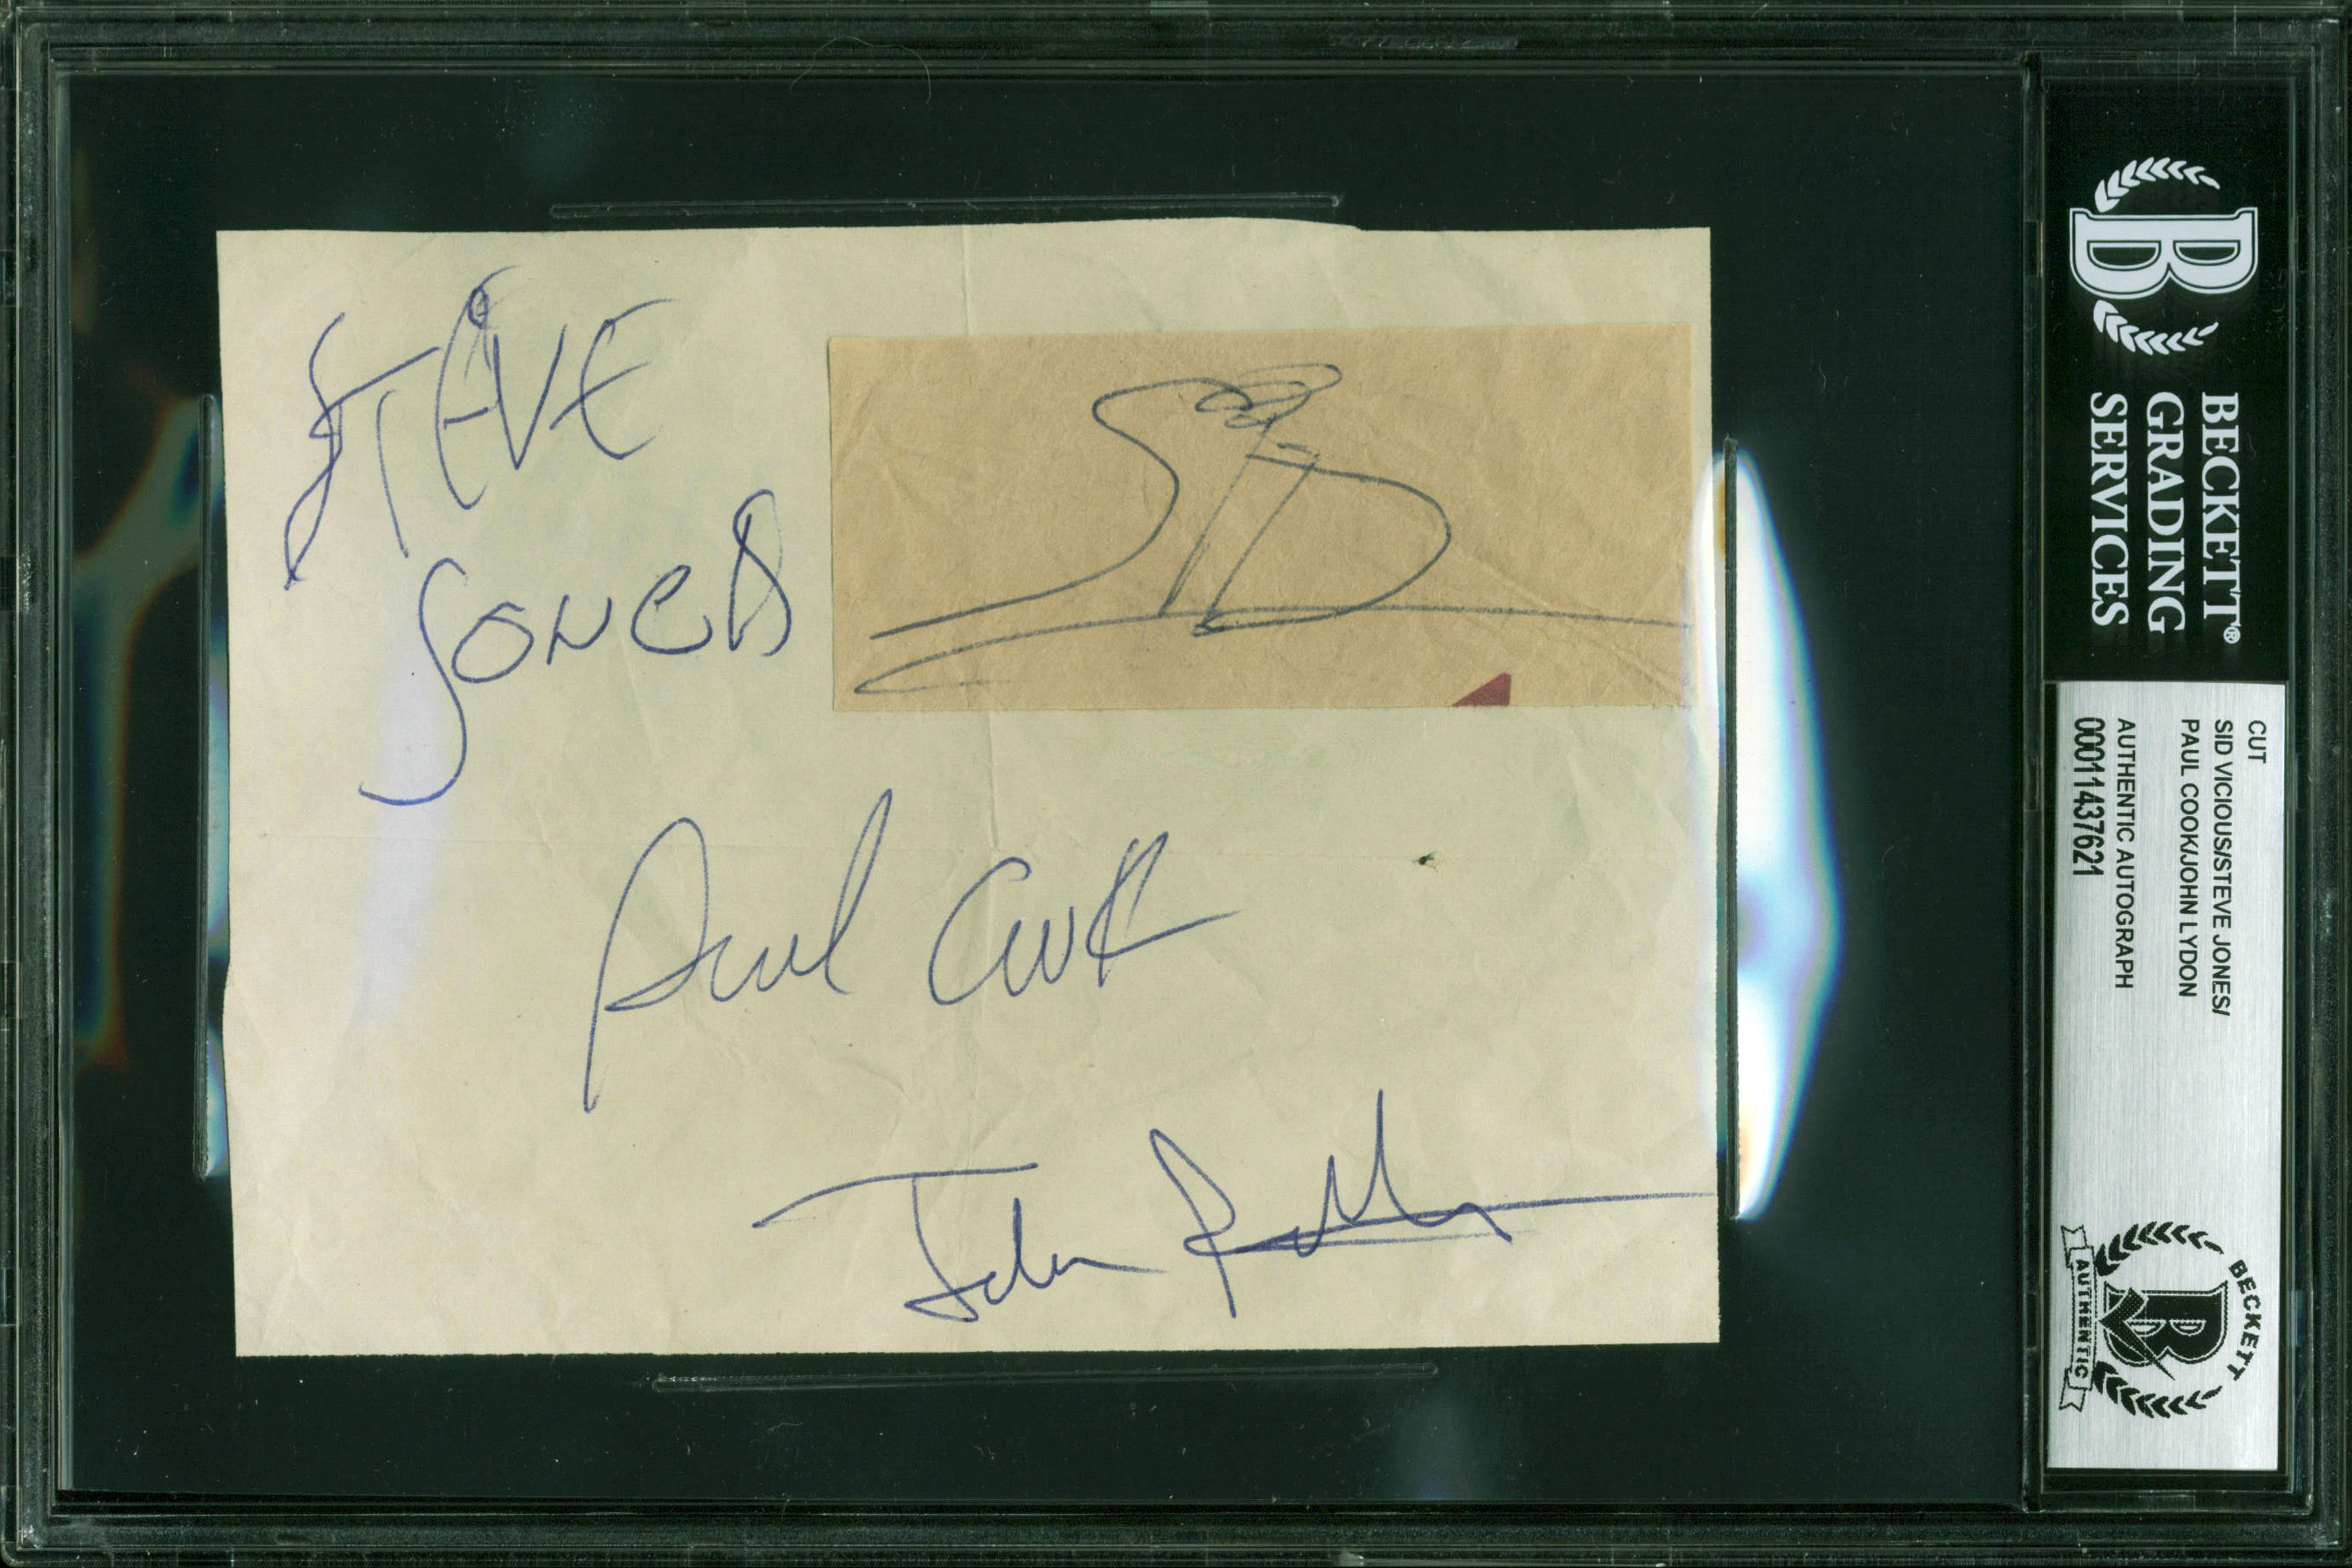 STEVE
JONES
SiD
Paul Cook
John Rotten
BECKETT®
GRADING
SERVICES
CUT
SID VICIOUS/STEVE JONES/
PAUL COOK/JOHN LYDON
AUTHENTIC AUTOGRAPH
00011437621
B
BECKETT
B
AUTHENTIC